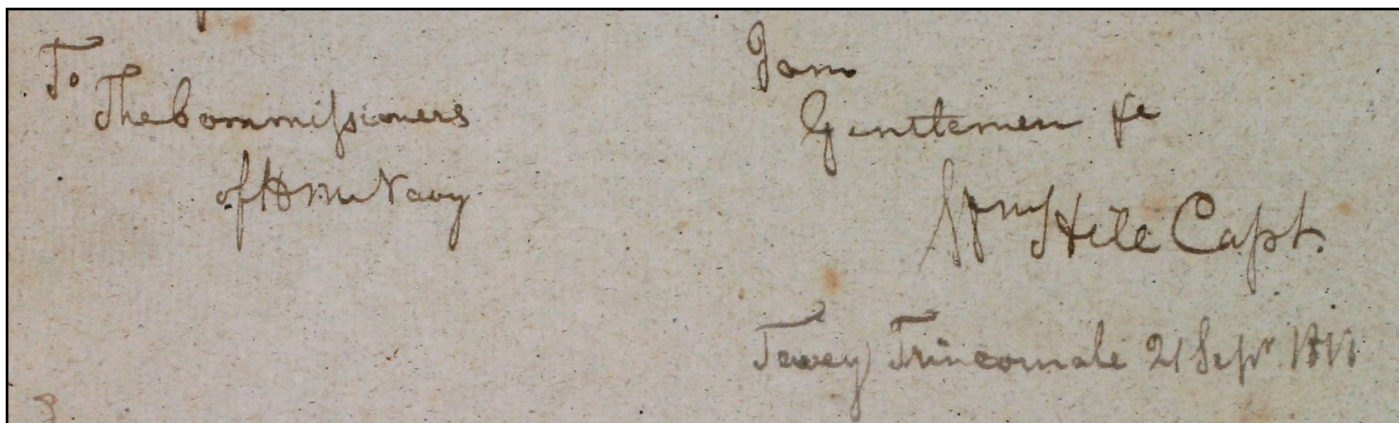 To
The Commissioners
of HM Navy
I am
Gentlemen &c
Wm Hill Capt.
Towey Trincomale 21 Sepr.